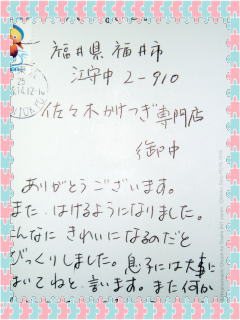 福井県福井市
江守中2-910
佐々木かけつぎ専門店
御中
ありがとうございます。
また、はけるようになりました。
こんなに きれいに なるのだと
びっくりしました。息子には大事に
はいてねと 言います。また何か